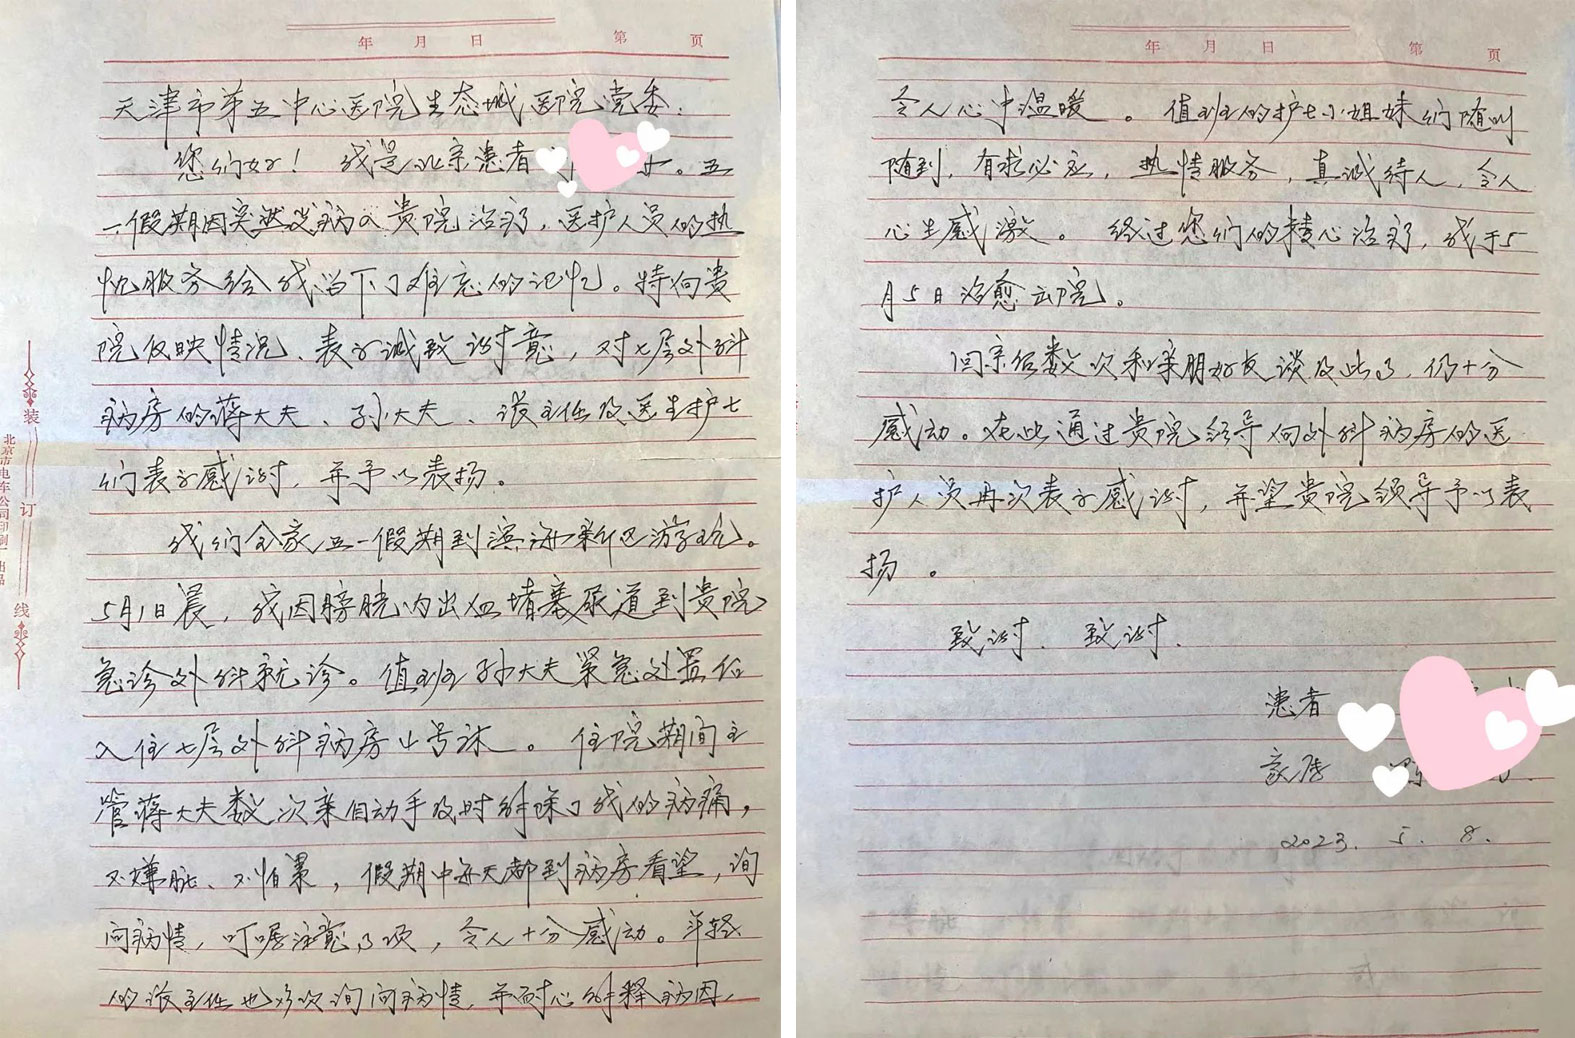 年 月 日 第 页
天津市第五中心医院生态城医院党委：
您们好！我是北京患者
。五
一假期因突然发病入贵院治疗，医护人员的热
忱服务给我留下了难忘的记忆。特向贵
院反映情况、表示诚致谢意，对七层外科
病房的蒋大夫、孙大夫、张主任及医生护士
们表示感谢，并予以表扬。
我们全家五一假期到滨海新区游玩。
5月1日晨，我因膀胱内出血堵塞尿道到贵院
急诊外科就诊。值班孙大夫紧急处置后
入住七层外科病房4号床。住院期间主
管蒋大夫数次亲自动手及时解除了我的病痛，
不嫌脏、不怕累，假期中每天都到病房看望，询
问病情，叮嘱注意事项，令人十分感动。年轻
的张主任也多次询问病情，并耐心解释病因，
装
订
线
北京市电车公司印刷厂出品
年 月 日 第 页
令人心中温暖。值班的护士小姐妹们随叫
随到，有求必应，热情服务，真诚待人，令人
心生感激。经过您们的精心治疗，我于5
月5日治愈出院。
回京后数次和亲朋好友谈及此事，仍十分
感动。在此通过贵院领导向外科病房的医
护人员再次表示感谢，并望贵院领导予以表
扬。
致谢．致谢．
患者
家属
2023．5．8．